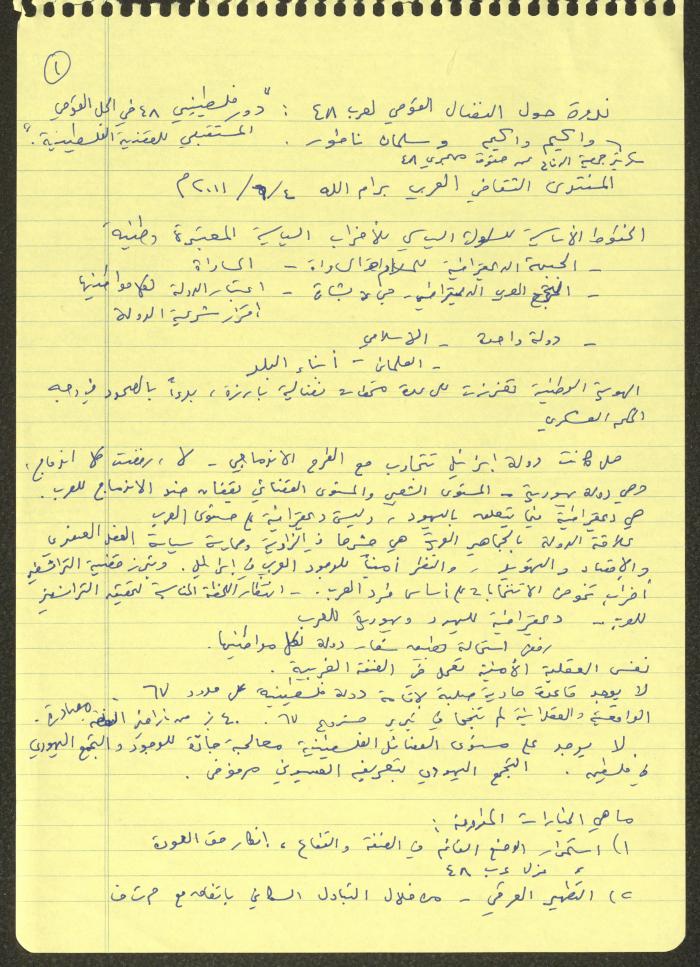 ١
ندوة حول النضال القومي لعرب ٤٨ : "دور فلسطينيي ٤٨ في الحل القومي
المستقبلي للقضية الفلسطينية".
واكيم واكيم وسلمان ناطور.
سكرتير جمعية الدفاع عن حقوق مهجري ٤٨
المنتدى الثقافي العربي برام الله ٤/ /٢٠١١م
الخطوط الأساسية للسلوك السياسي للأحزاب السياسية المعتبرة وطنية
- الجبهة الديمقراطية للسلام والمساواة - المساواة
- التجمع العربي الديمقراطي - بشارة - اعتبار الدولة لكل مواطنيها
اقرار شرعية الدولة
- دولة واحدة - الاسلامي
- العلماني - أبناء البلد
الهوية الوطنية تعززت على عدة محطات نضالية بارزة، بدءاً بالصمود في وجه
الحكم العسكري
هل كانت دولة إسرائيل تتجاوب مع الطرح الاندماجي - لا، رفضت كل اندماج،
وهي دولة يهودية - المستوى الشعبي والمستوى القضائي يقفان ضد الاندماج للعرب.
هي ديمقراطية فيما يتعلق باليهود، وليست ديمقراطية على مستوى العرب
علاقة الدولة بالجماهير العربية هي وممارسة سياسة الفصل العنصري
والإقصاء والتهويد - والنظر أمنياً للوجود العربي في إسرائيل. وتبرز قضية الترانسفير
أحزاب تخوض الانتخابات على أساس طرد العرب. - انتظار اللحظة المناسبة لتحقيق الترانسفير
للعرب - ديمقراطية لليهود ويهودية للعرب
رفض استحالة تطبيق شعار دولة لكل مواطنيها.
نفس العقلية الأمنية تعمل في الضفة الغربية.
لا يوجد قاعدة مادية صلبة لإقامة دولة فلسطينية على حدود ٦٧ -
الواقعية والعقلانية لم تنجحا في تبرير مشروع ٦٧. ٤٠٪ من أراضي الضفة مصادرة.
لا يوجد على مستوى الفصائل الفلسطينية معالجة جادّة للوجود والتجمع اليهودي
في فلسطين. التجمع اليهودي بتعريفه الصهيوني مرفوض.
ما هي الخيارات المطروحة:
١) استمرار الوضع القائم في الضفة والقطاع، إنكار حق العودة
عزل عرب ٤٨
٢) التطهير العرقي - من خلال التبادل السكاني باتفاق مع م ت ف